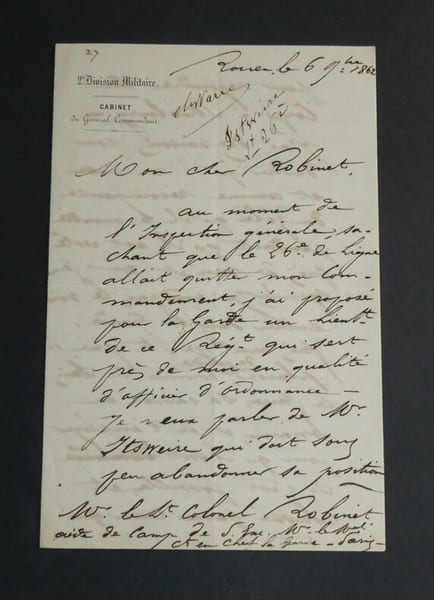 27
Rouen, le 6 9bre 1862
2e Division Militaire.
CABINET
du Général Commandant.
Itsweire
Lt 26e
Mon cher Robinet,
au moment de
l'Inspection générale, sa-
chant que le 26e de Ligne
allait quitter mon com-
mandement, j'ai proposé
pour la Garde un Lieut.
de ce Régt. qui sert
près de moi en qualité
d'officier d'ordonnance –
je veux parler de Mr.
Itsweire qui doit sous
peu abandonner sa position
Mr. le Lt Colonel Robinet
aide de camp de S. Exc. Mr. le Mal
Ct en Chef la Garde – Paris –